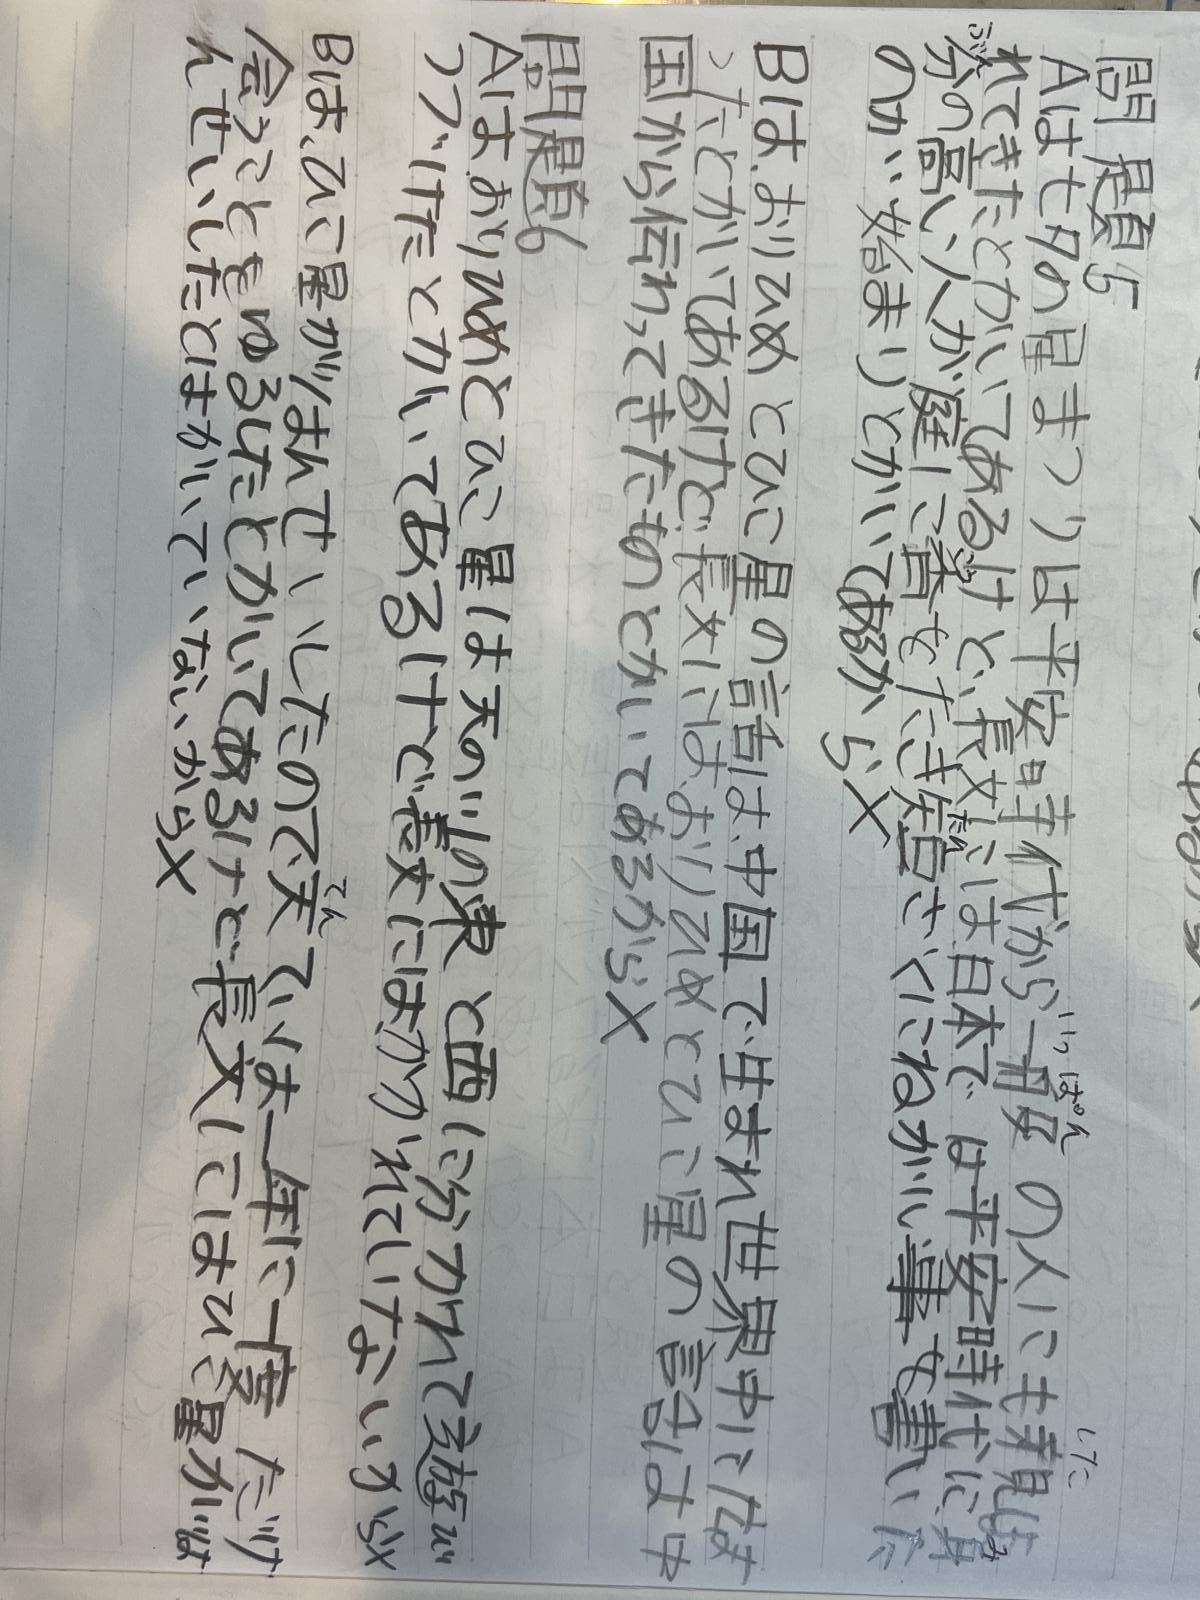 問題5
Aは七夕の星まつりは平安時代から一般の人にも親しま
れてきたとかいてあるけど、長文には日本では平安時代に身
分の高い人が庭に香をたき短さくにねがい事を書いた
のが始まりとかいてあるからX
Bは、おりひめとひこ星の話は、中国で生まれ世界中に広ま
ったとかいてあるけど、長文にはおりひめとひこ星の話は中
国から伝わってきたものとかいてあるからX
問題6
Aは、おりひめとひこ星は天の川の東と西に分かれて遊び
つづけたとかいてあるけどで長文にはかかれていないからX
Bは、ひこ星がはんせいしたので天ていは一年に一度だけ
会うことをゆるしたとかいてあるけど長文にはひこ星がは
んせいしたとはかいていないからX